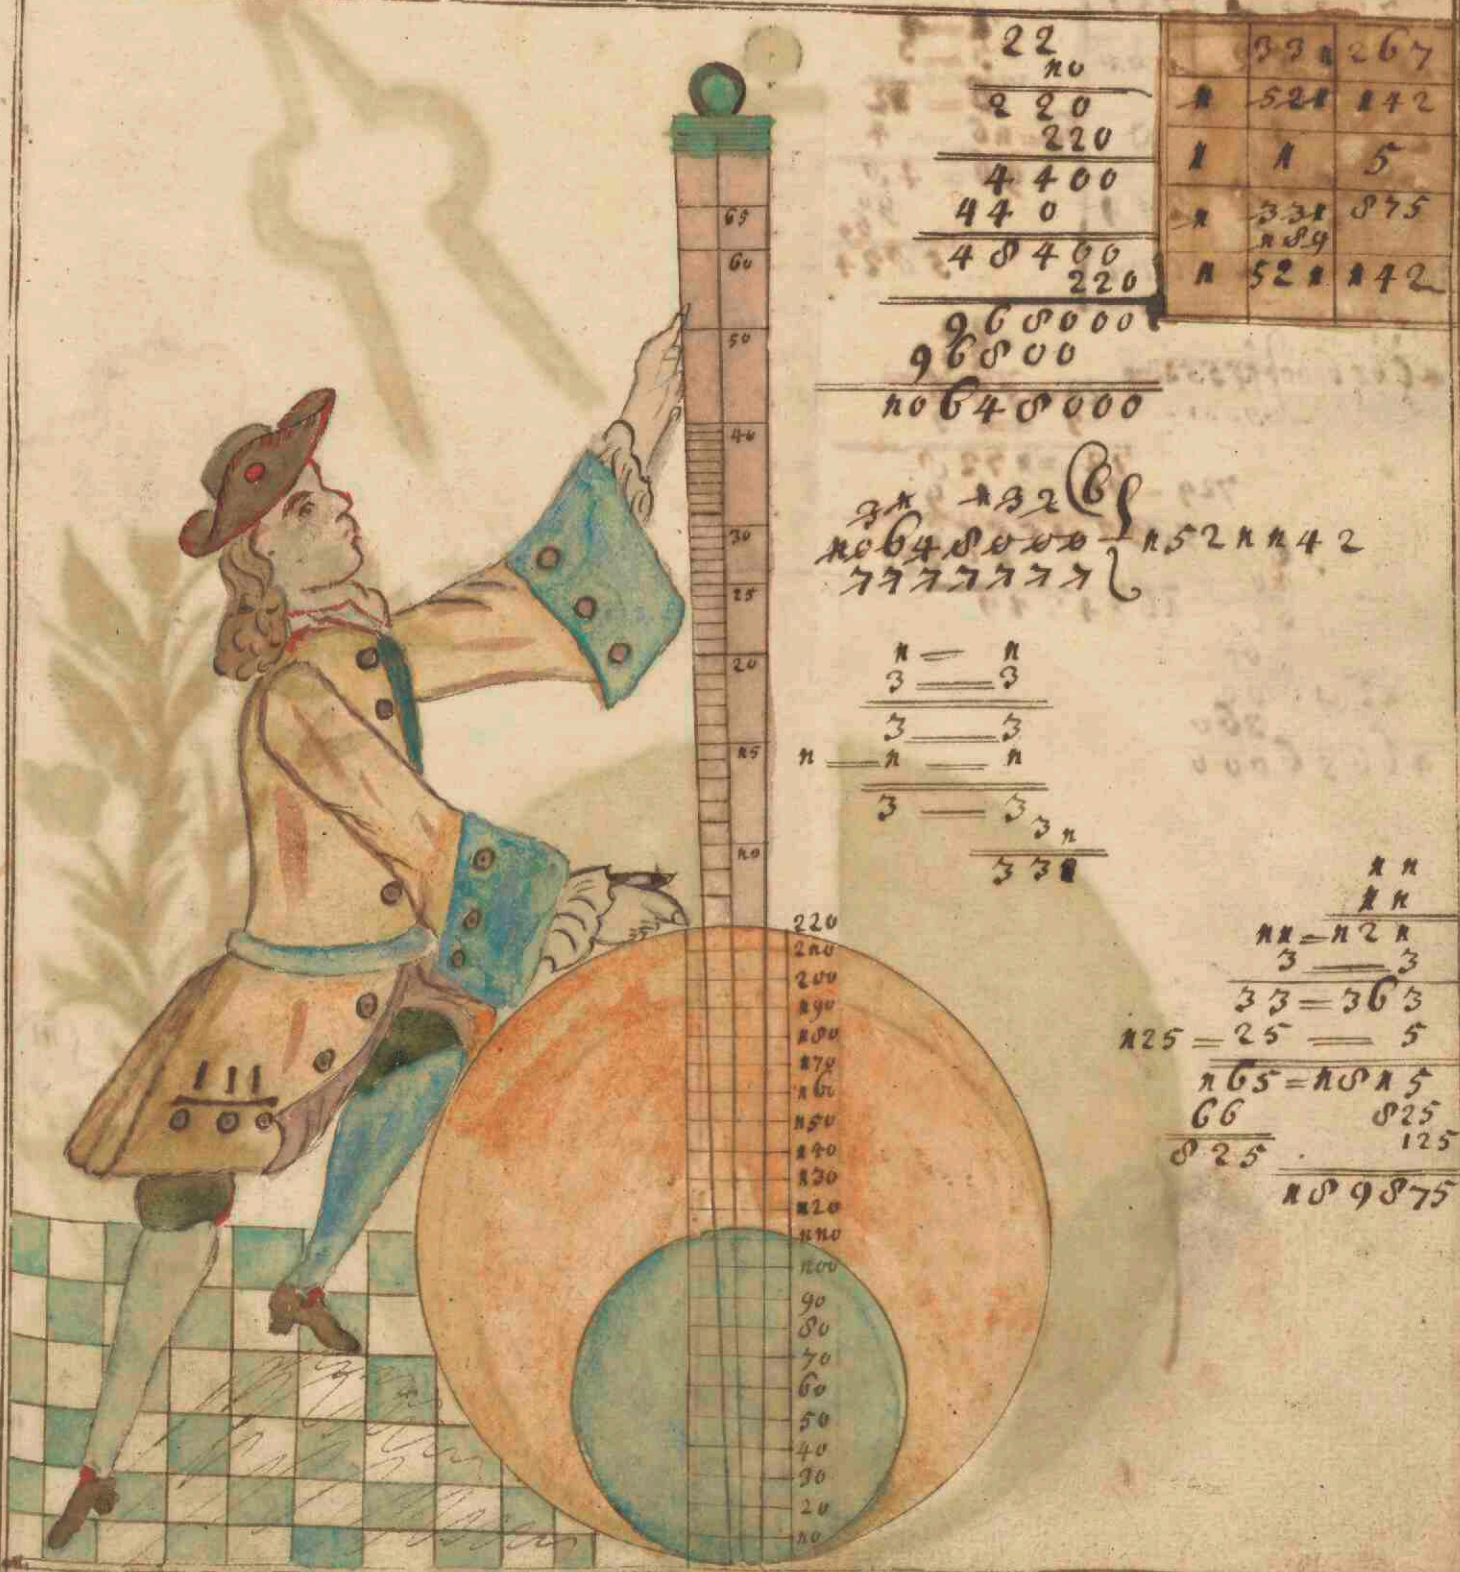 22
10
220
220
4400
440
48400
220
968000
96800
10648000
331 267
1 521 142
1 1 5
1 331 875
189
1 521 142
31 132(6
10648000 — 1521142
7777777
1 — 1
3 — 3
3 — 3
1 — 1 — 1
3 — 3
31
331
11
11
11 = 121
3 — 3
33 = 363
125 = 25 = 5
165 = 1815
66 825
825 125
189875
65
60
50
40
30
25
20
15
10
220
210
200
190
180
170
160
150
140
130
120
110
100
90
80
70
60
50
40
30
20
10